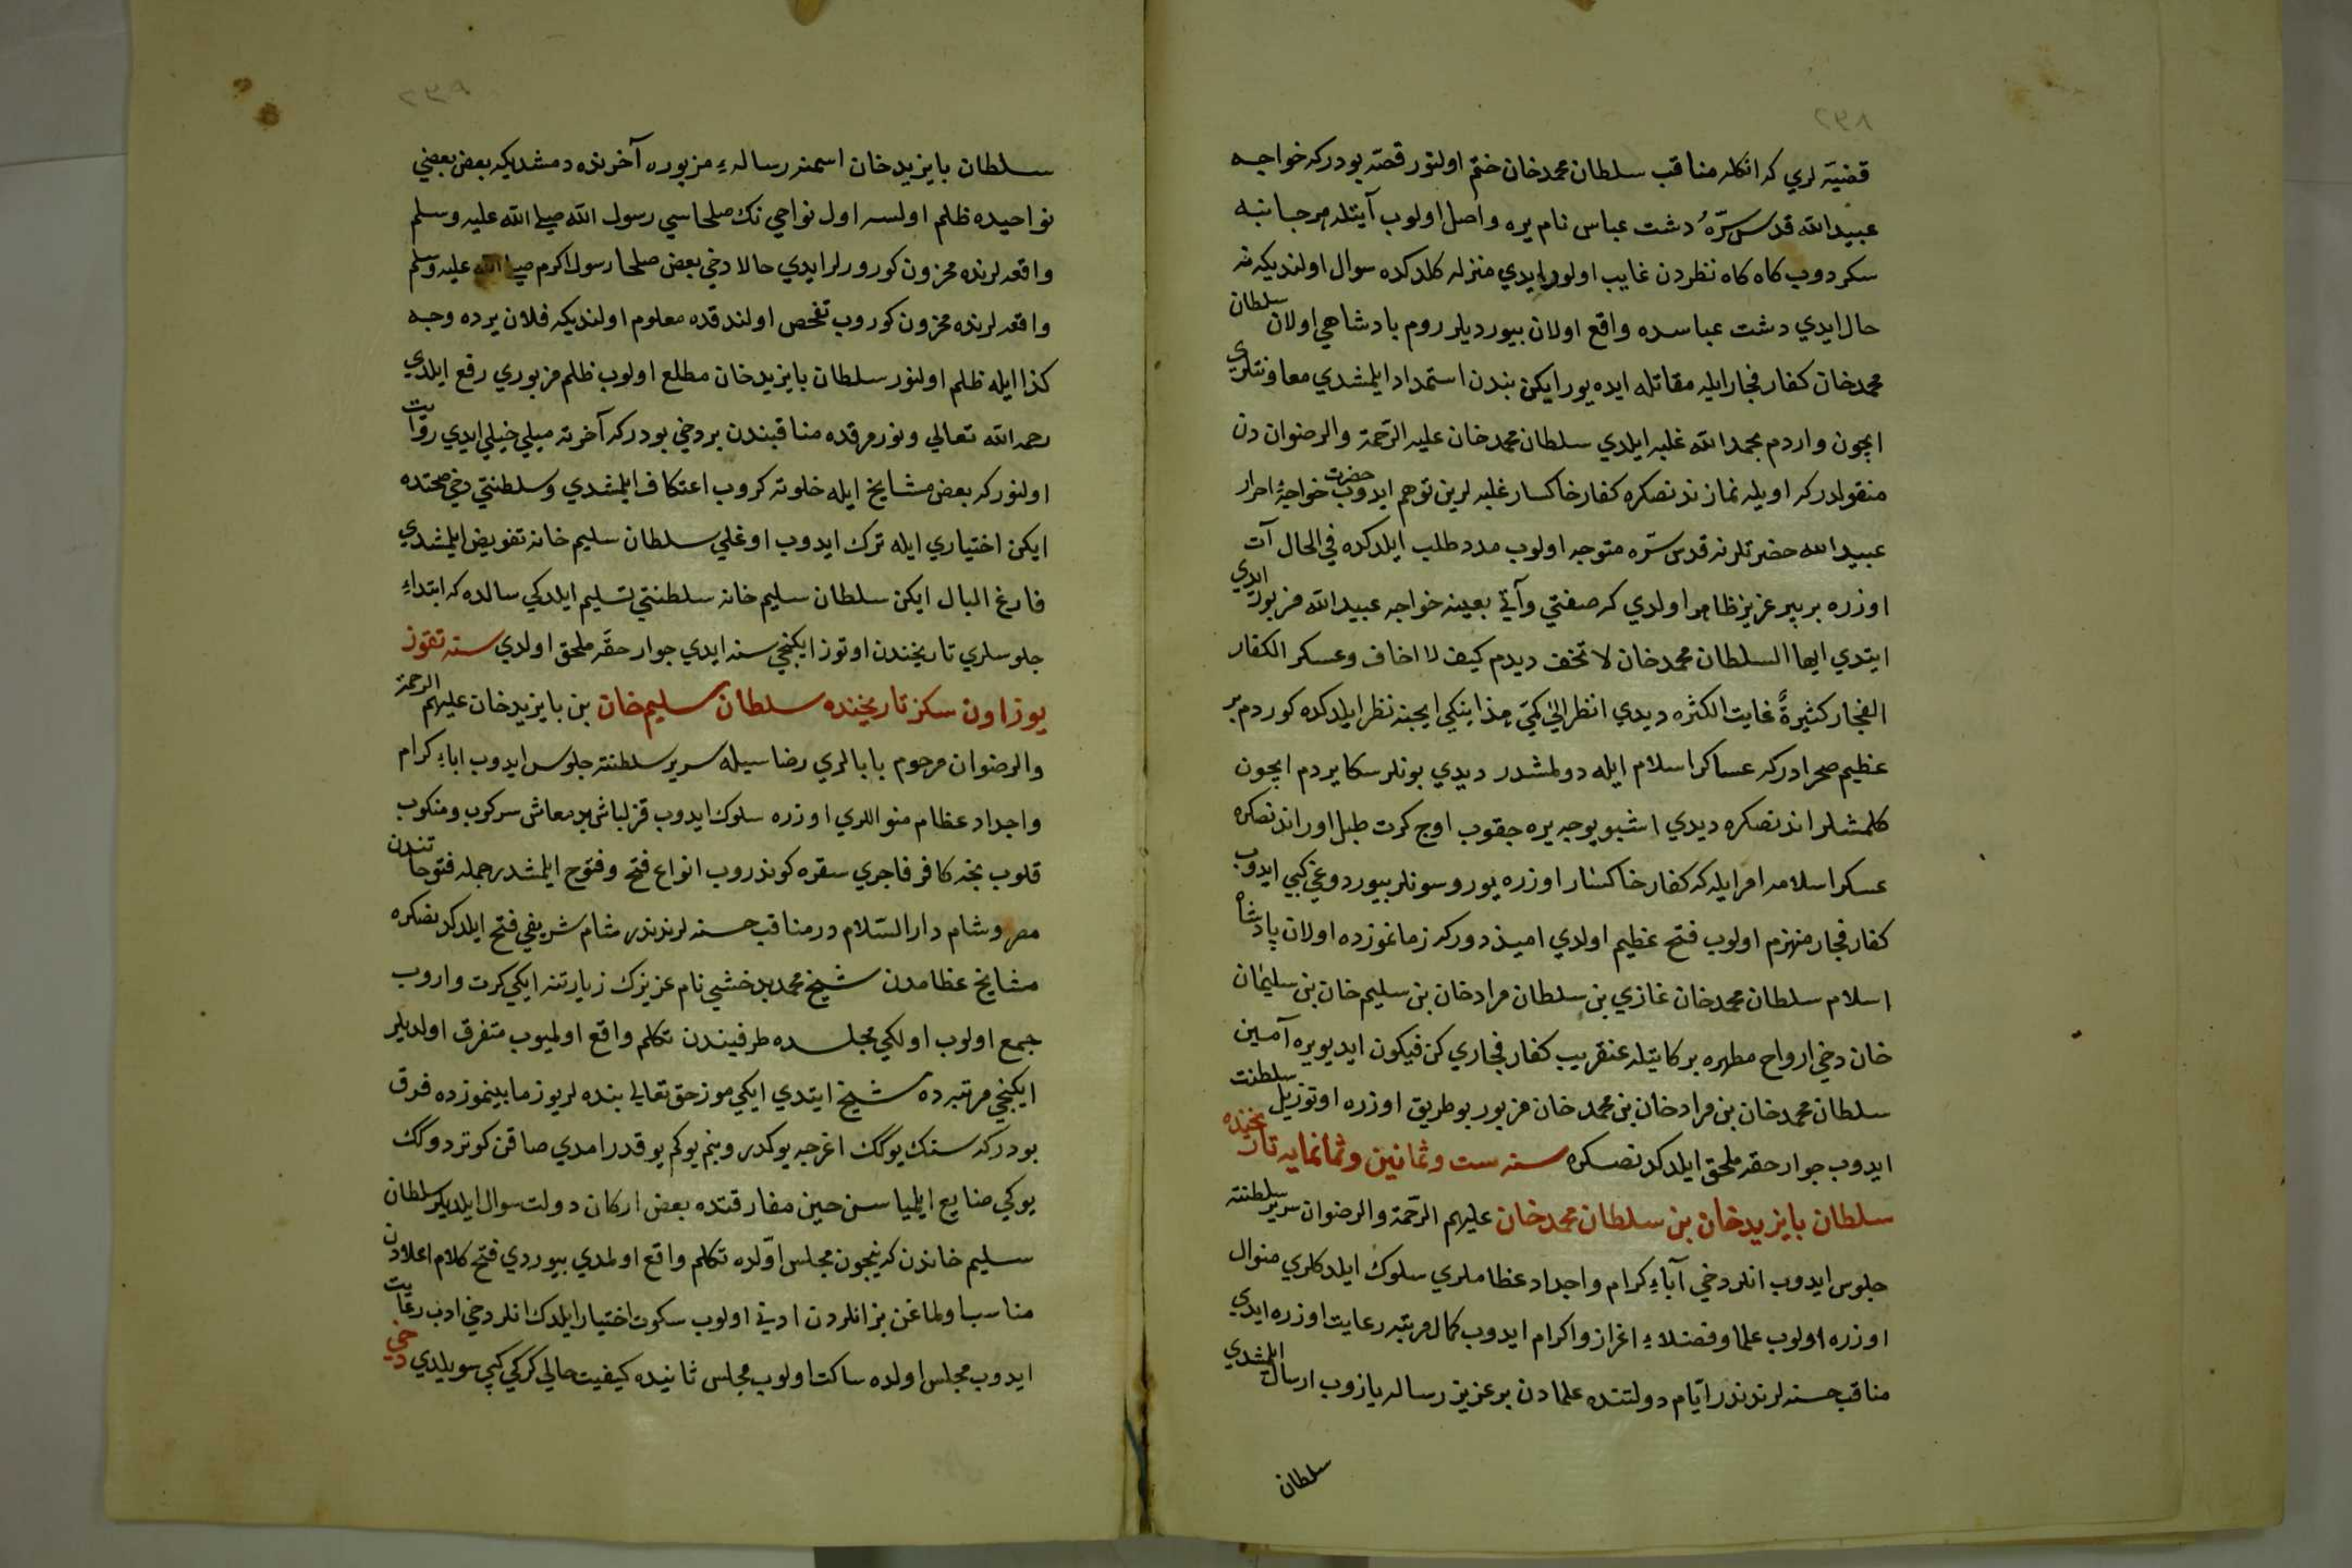 قضیّه لري كه انكله مناقب سلطان محمدخان ختم اولنور قصّه بودركه خواجه
عبیدالله قدس سرّهُ دشت عباس نام يره واصل اولوب آيتله هر جانبه
سكردوب كاه كاه نظردن غايب اولورايدي منزله كلدكده سوال اولنديكه نه
حال ايدي دشت عباسده واقع اولان بيورديلر روم پادشاهي اولان سلطان
محمدخان كفار فجار ايله مقاتله ايده يورايكن بندن استمداد ايلمشدي معاونتلري
ايچون واردم بحمدالله غلبه ايلدي سلطان محمدخان عليه الرّحمة والرضوان دن
منقولدركه اويله نمازندنصكره كفار خاكسار غلبه لرين توهم ايدوب حضرت خواجۀ احرار
عبيدالله حضرتلرنه قدس سّره متوجه اولوب مدد طلب ايلدكده في الحال آت
اوزره بر پير عزيز ظاهر اولدي كه صفتي وآتي بعينه خواجه عبيدالله مزبور ايدي
ايتدي ايها السلطان محمدخان لا تخف ديدم كيف لا اخاف وعسكر الكفار
الفجار كثيرةً غايت الكثره ديدي انظر الىٰ كمّي هذا ينكي ايچنه نظر ايلدكده كوردم بر
عظيم صحرادركه عساكر اسلام ايله دولمشدر ديدي بونلر سكا يردم ايچون
كلمشلر اندنصكره ديدي اشبو يوجه يره چقوب اوچ كرت طبل اور اندنصكره
عسكر اسلامه امر ايله كه كفار خاكسار اوزره يوروسونلر بيوردوغي كبي ايدوب
كفار فجار منهزم اولوب فتح عظيم اولدي اميذ دوركه زمانموزده اولان پادشاه
اسلام سلطان محمدخان غازي بن سلطان مرادخان بن سليم خان بن سليمان
خان دخي ارواح مطهره بركاتيله عنقريب كفار فجاري كن فيكون ايديويره آمين
سلطان محمدخان بن مرادخان بن محمد خان مزبور بوطريق اوزره اوتوزيل سلطنت
ايدوب جوار حقه ملحق ايلدكدنصكره سنه ست وثمانين وثمانمايه تاريخنده
سلطان بايزيدخان بن سلطان محمدخان عليهم الرّحمة والرضوان سرير سلطنته
جلوس ايدوب انلردخي آباءِ كرام واجداد عظاملري سلوك ايلدكلري منوال
اوزره اولوب علما وفضلاءِ اعزاز واكرام ايدوب كمال مرتبه رعايت اوزره ايدي
مناقب حسنه لرندندر ايّام دولتنده علمادن بر عزيز رساله يازوب ارسال ايلمشدي
سلطان
سلطان بايزيدخان اسمنه رسالهءِ مزبوره آخرنده دمشديكه بعض بعضي
نواحيده ظلم اولسه اول نواحي نك صلحاسي رسول الله صلي الله عليه وسلم
واقعه لرنده محزون كورورلرايدي حالا دخي بعض صلحا رسول اكرم صلي الله عليه وسلم
واقعه لرنده محزون كوروب تفحص اولندقده معلوم اولنديكه فلان يرده وجه
كذا ايله ظلم اولنور سلطان بايزيدخان مطلع اولوب ظلم مزبوري رفع ايلدي
رحمه الله تعالي ونور مرقده مناقبندن بر دخي بودركه آخرته ميلي خيلي ايدي روايت
اولنوركه بعض مشايخ ايله خلوته كروب اعتكاف ايلمشدي وسلطنتي دخي صحتده
ايكن اختياري ايله ترك ايدوب اوغلي سلطان سليم خانه تفويض ايلمشدي
فارغ البال ايكن سلطان سليم خانه سلطنتي تسليم ايلدكي سالده كه ابتداءِ
جلوسلري تاريخندن اوتوز ايكنجي سنه ايدي جوار حقَّه ملحق اولدي سنه تقوز
يوز اون سكز تاريخنده سلطان سليم خان بن بايزيدخان عليهم الرحمة
والرضوان مرحوم بابالري رضاسيله سرير سلطنته جلوس ايدوب اباءِ كرام
واجداد عظام منواللري اوزره سلوك ايدوب قزلباش بدمعاش سركوب ومنكوب
قلوب نجه كافر فاجري سقره كوندروب انواع فتح وفتوح ايلمشدر جمله فتوحاتندن
مصر وشام دارالسّلام در مناقب حسنه لرندندر شام شريفي فتح ايلدكدنصكره
مشايخ عظامدن شيخ محمد بدخشي نام عزيزك زيارتنه ايكي كرت واروب
جمع اولوب اولكي مجلسده طرفيندن تكلم واقع اولميوب متفرق اولديلر
ايكنجي مرتبه ده شيخ ايتدي ايكي موز حق تعالي بنده لريوز مابينموزده فرق
بودركه سنك يوكك اغرجه يوكدر وبنم يوكم يوقدر امدي صاقن كوتردوكك
يوكي ضايع ايلمياسن حين مفارقتده بعض اركان دولت سوال ايلديكر سلطان
سليم خاندن كه نيچون مجلس اوّلده تكلم واقع اولمدي بيوردي فتح كلام اعلادن
مناسب اولماغن بز انلردن ادني اولوب سكوت اختيار ايلدك انلر دخي ادب رعايت
ايدوب مجلس اولده ساكت اولوب مجلس ثانيده كيفيت حالي كركي كبي سويلدي دخي